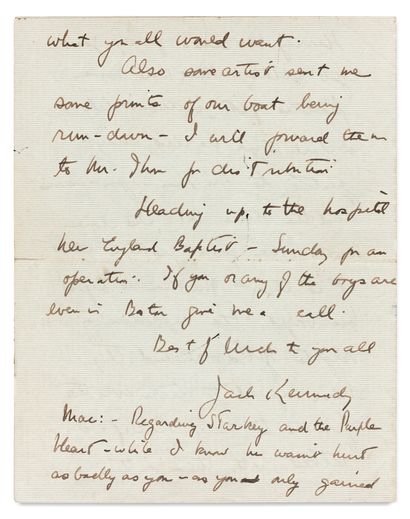 what you all would want.
Also some artist sent me
some prints of our boat being
run-down - I will forward them
to Mr. Thom for distribution
Heading up, to the hospital
New England Baptist - Sunday for an
operation. If you or any of the boys are
ever in Boston give me a call.
Best of luck to you all
Jack Kennedy
Mac: - Regarding Starkey and the Purple
Heart - while I know he wasn't hurt
as badly as you - as you only gained